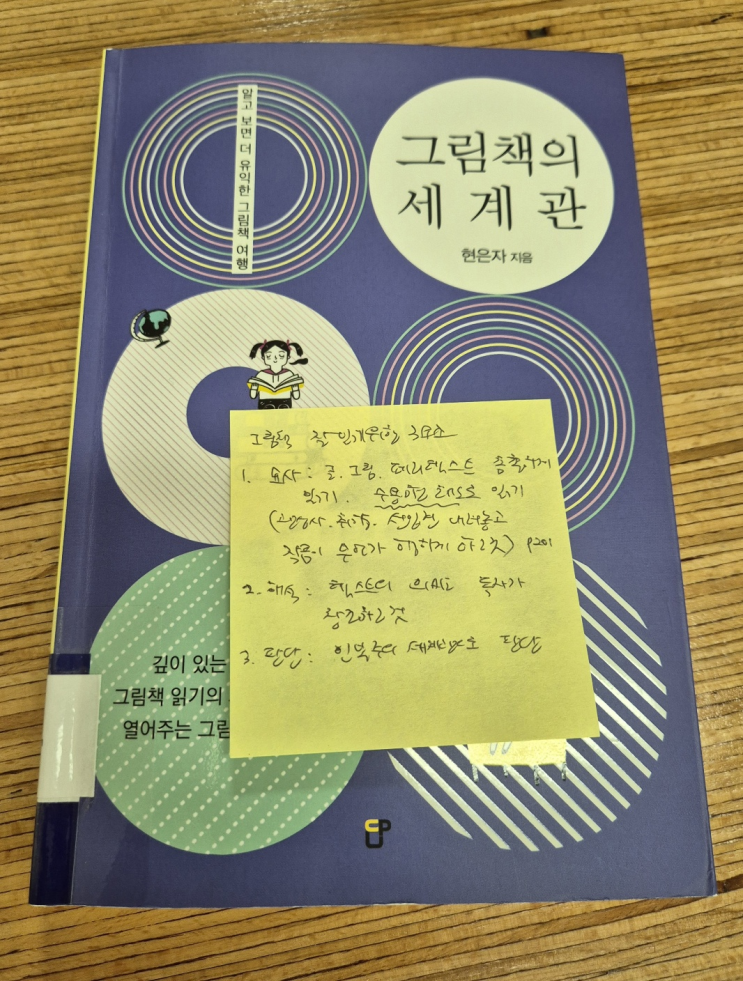 알고 보면 더 유익한 그림책 여행
그림책의
세 계 관
현은자 지음
그림책 잘 읽기 위한 3요소
1. 묘사 : 글. 그림. 페리텍스트 충실하게
읽기. 수용하는 태도로 읽기
(고정관념. 취향. 선입견 내려놓고
작품이 무언가 행하게 하는 것) p201
2. 해석 : 텍스트의 의미는 독자가
창조하는 것
3. 판단 : 인본주의 세계관으로 판단
깊이 있는
그림책 읽기의
열어주는 그림